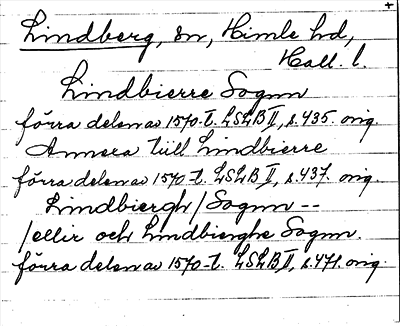 +
Lindberg, sn, Himle hd,
Hall. l.
Lindbierre Sognn
förra delen av 1570-t. LSLB II, s. 435. orig.
Annexa till Lindbierre
förra delen av 1570-t. LSLB II, s. 437. orig.
Lindbiergh / Sognn --
/ ellir och Lindbierghe Sognn.
förra delen av 1570-t. LSLB II, s. 471. orig.